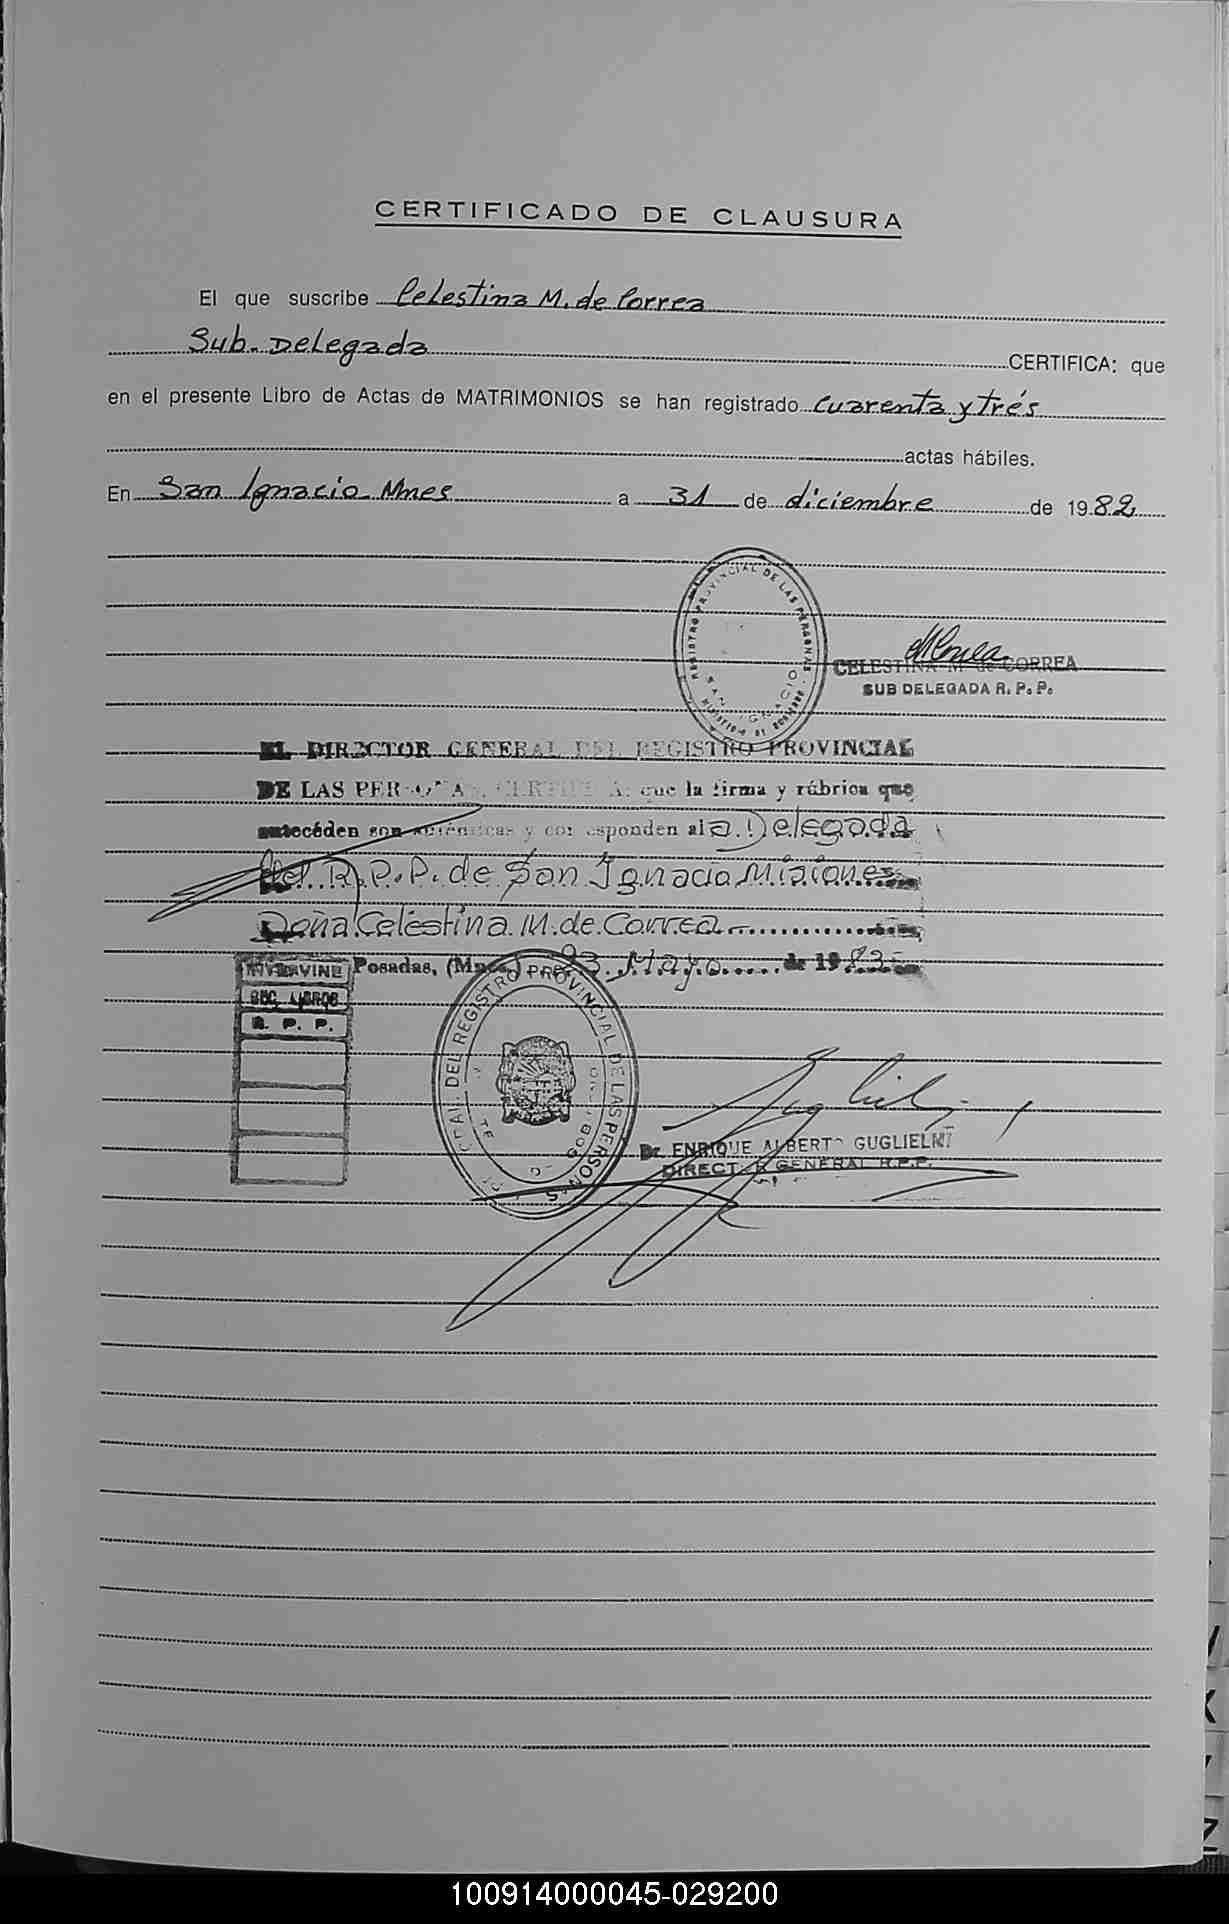 CERTIFICADO DE CLAUSURA
El que suscribe Celestina M. de Correa
Sub. Delegada CERTIFICA: que
en el presente Libro de Actas de MATRIMONIOS se han registrado cuarenta y trés
actas hábiles.
En San Ignacio Mnes a 31 de diciembre de 1982
REGISTRO PROVINCIAL DE LAS PERSONAS
SAN IGNACIO
CELESTINA M. de CORREA
SUB DELEGADA R. P. P.
EL DIRECTOR GENERAL DEL REGISTRO PROVINCIAL
DE LAS PERSONAS, CERTIFICA: que la firma y rúbrica que
antecéden son auténticas y corresponden al a. Delegada
del R.P.P. de San Ignacio Misiones
Doña Celestina M. de Correa
Posadas, (Mnes.) 23 Mayo de 1983
INTERVINE
SEC. LIBROS
R. P. P.
GRAL. DEL REGISTRO PROVINCIAL DE LAS PERSONAS
Dr. ENRIQUE ALBERTO GUGLIELMI
DIRECTOR GENERAL R.P.P.
X
Z
100914000045-029200